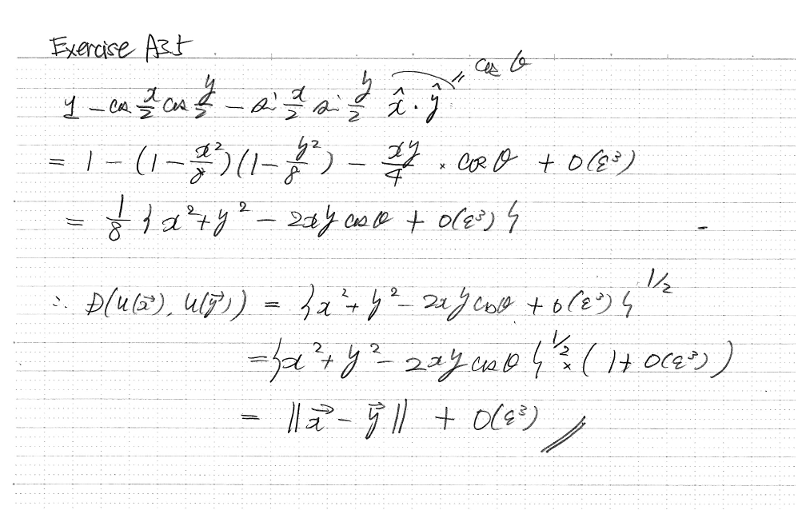 Exercise A3.5
cos θ
1 - cos x/2 cos y/2 - sin x/2 sin y/2 x̂·ŷ
= 1 - (1 - x²/8)(1 - y²/8) - xy/4 × cos θ + O(ε³)
= 1/8 { x² + y² - 2xy cos θ + O(ε³) }
∴ D(U(x⃗), U(y⃗)) = { x² + y² - 2xy cos θ + O(ε³) }^1/2
= { x² + y² - 2xy cos θ }^1/2 × (1 + O(ε³))
= ||x⃗ - y⃗|| + O(ε³)